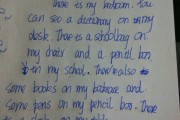 There is my bedroom. You
can see a dictionary on my
desk. There is a schoolbag on
my chair and a pencil box
in my school. There also
some books on my bookcase and
some pens on my pencil box. There
is a clock on my table